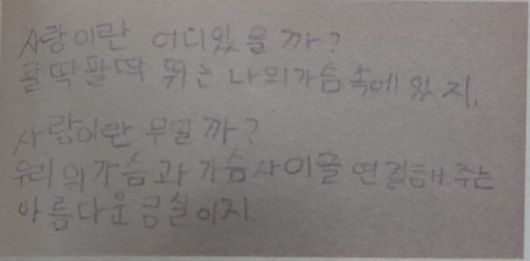 사랑이란 어디있을까?
팔딱팔딱 뛰는 나의가슴속에 있지.
사랑이란 무얼까?
우리의가슴과 가슴사이를 연결해 주는
아름다운 금실이지